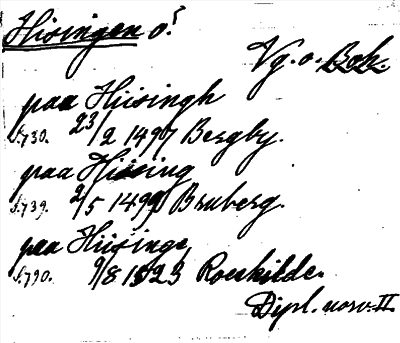 Hisingen ö.
Vg. o. Boh.
paa Hiisingh
s. 730. 23/2 1497 Bergby.
paa Hissing
s. 739. 2/5 1499 Bruberg.
paa Hiisinge
s. 790. 9/8 1523 Roeskilde.
Dipl. norv. II.